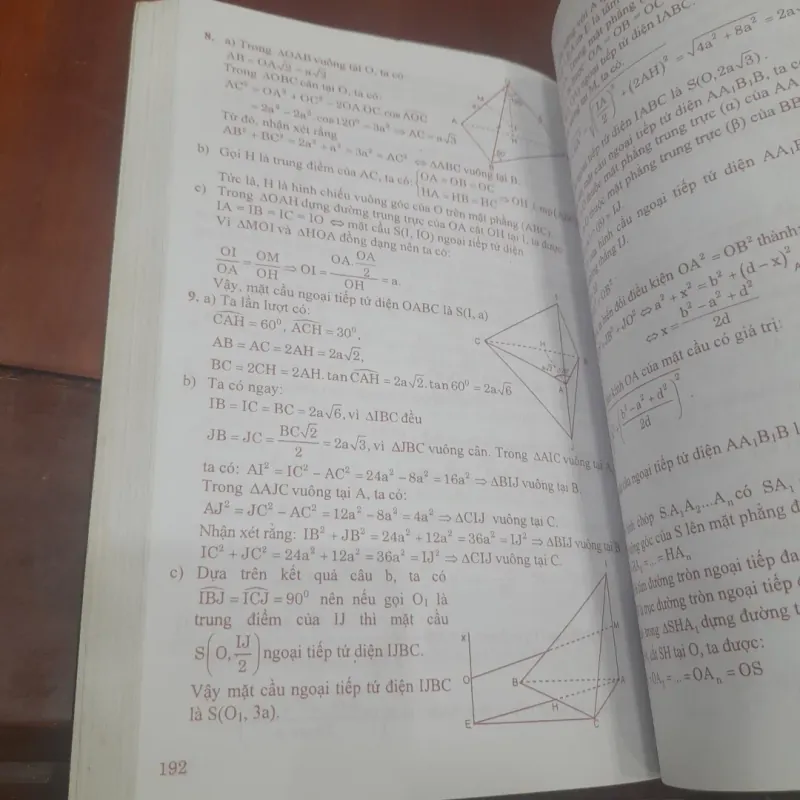 8. a) Trong ΔOAB vuông tại O, ta có
AB = OA√2 = a√2
Trong ΔOBC cân tại O, ta có:
AC² = OA² + OC² – 2OA.OC cos AOC
= 2a² – 2a² cos120⁰ = 3a² ⇒ AC = a√3
Từ đó, nhận xét rằng
AB² + BC² = 2a² + a² = 3a² = AC² ⇔ ΔABC vuông tại B.
b) Gọi H là trung điểm của AC, ta có: {OA = OB = OC
HA = HB = HC ⇒ OH ⊥
Tức là, H là hình chiếu vuông góc của O trên mặt phẳng (ABC)
c) Trong ΔOAH dựng đường trung trực của OA cắt OH tại I, ta được
IA = IB = IC = IO ⇔ mặt cầu S(I, IO) ngoại tiếp tứ diện
Vì ΔMOI và ΔHOA đồng dạng nên ta có:
OI/OA = OM/OH ⇒ OI = (OA.OA/2)/OH = a.
Vậy, mặt cầu ngoại tiếp tứ diện OABC là S(I, a)
9. a) Ta lần lượt có:
CAH = 60⁰, ACH = 30⁰,
AB = AC = 2AH = 2a√2,
BC = 2CH = 2AH.tanCAH = 2a√2.tan60⁰ = 2a√6
b) Ta có ngay:
IB = IC = BC = 2a√6, vì ΔIBC đều
JB = JC = BC√2/2 = 2a√3, vì ΔJBC vuông cân. Trong ΔAIC vuông tại A,
ta có: AI² = IC² – AC² = 24a² – 8a² = 16a² ⇒ ΔBIJ vuông tại B.
Trong ΔAJC vuông tại A, ta có:
AJ² = JC² – AC² = 12a² – 8a² = 4a² ⇒ ΔCIJ vuông tại C.
Nhận xét rằng: IB² + JB² = 24a² + 12a² = 36a² = IJ² ⇒ ΔBIJ vuông tại B
IC² + JC² = 24a² + 12a² = 36a² = IJ² ⇒ ΔCIJ vuông tại C.
c) Dựa trên kết quả câu b, ta có
IBJ = ICJ = 90⁰ nên nếu gọi O₁ là
trung điểm của IJ thì mặt cầu
S(O, IJ/2) ngoại tiếp tứ diện IJBC.
Vậy mặt cầu ngoại tiếp tứ diện IJBC
là S(O₁, 3a).
192
OA = OB = OC
ngoại tiếp tứ diện IABC.
+ (2AH)² = √4a² + 8a² = 2a
tiếp tứ diện IABC là S(O, 2a√3).
cầu ngoại tiếp tứ diện AA₁B₁B, ta có
mặt phẳng trung trực (α) của AA
mặt phẳng trung trực (β) của BB
cầu ngoại tiếp tứ diện AA₁B
đổi điều kiện OA² = OB² thành:
⇔ a² + x² = b² + (d – x)²
⇔ x = (b² – a² + d²)/2d
OA của mặt cầu có giá trị:
(b² – a² + d²/2d)².
ngoại tiếp tứ diện AA₁B₁B
chóp SA₁A₂...Aₙ có SA₁
góc của S lên mặt phẳng
= ... = HAₙ
đường tròn ngoại tiếp đa
đường tròn ngoại tiếp
trong ΔSHA₁ dựng đường
SH tại O, ta được:
= ... = OAₙ = OS